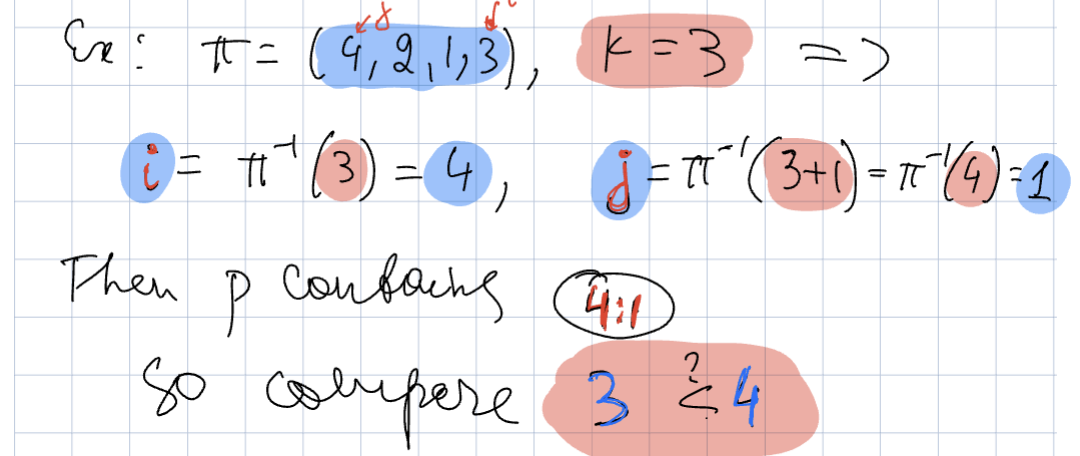 j i
Ex: π = (4, 2, 1, 3), k = 3 =>
i = π⁻¹(3) = 4, j = π⁻¹(3+1) = π⁻¹(4) = 1
Then p contains 4:1
So compare 3 <? 4